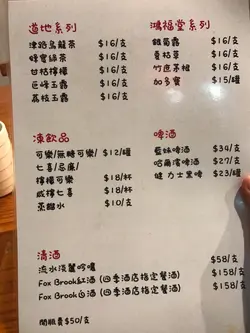 道地系列
津路烏龍茶 $16/支
蜂蜜綠茶 $16/支
甘桔檸檬 $16/支
巨峰玉露 $16/支
荔枝玉露 $16/支
鴻福堂系列
雞骨草 $16/支
夏枯草 $16/支
竹蔗茅根 $16/支
加多寶 $15/罐
凍飲品
可樂/無糖可樂/ $12/罐
七喜/忌廉/
檸檬可樂 $18/杯
咸檸七喜 $18/杯
蒸餾水 $10/支
啤酒
藍妹啤酒 $34/支
哈爾濱啤酒 $27/支
健力士黑啤 $23/罐
清酒
流水淡麗吟釀 $58/支
Fox Brook紅酒 (四季酒店指定餐酒) $158/支
Fox Brook白酒 (四季酒店指定餐酒) $158/支
開瓶費$50/支